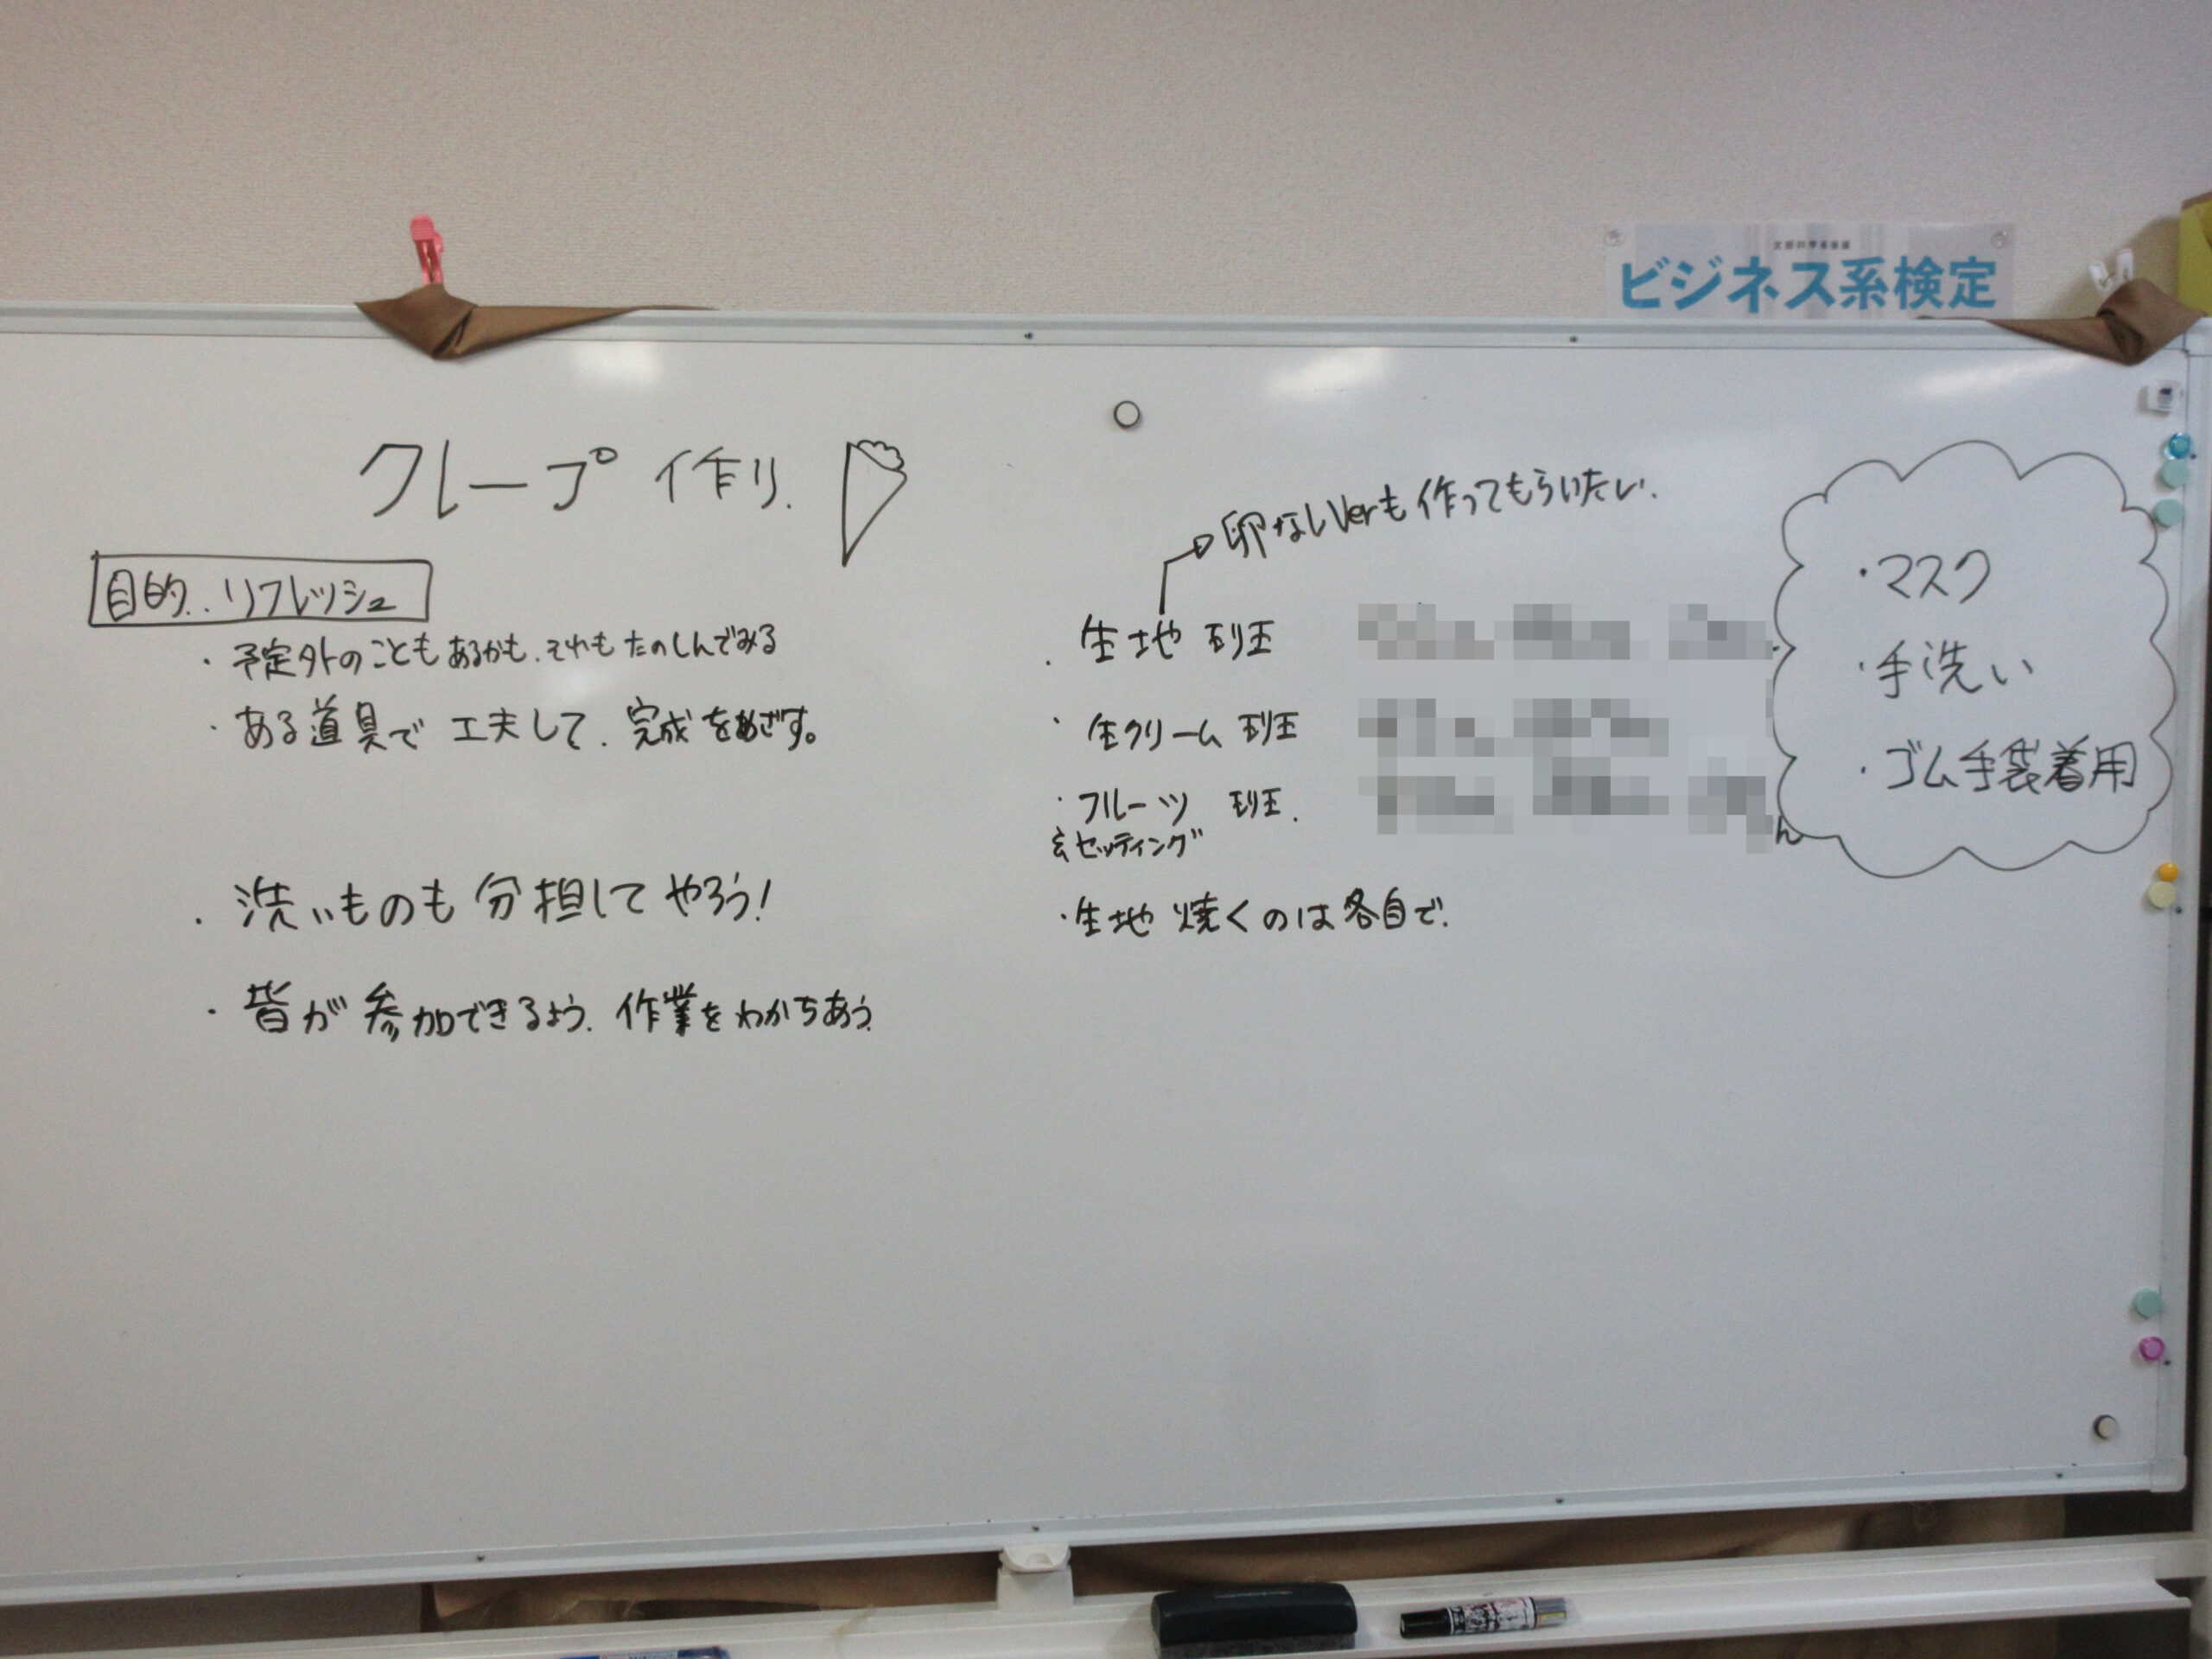 文部科学省後援
ビジネス系検定
クレープ作り.
目的..リフレッシュ
・予定外のこともあるかも.それもたのしんでみる
・ある道具で工夫して.完成をめざす。
・洗いものも分担してやろう!
・皆が参加できるよう.作業をわかちあう.
卵なしVerも作ってもらいたい.
・生地班
・生クリーム班
・フルーツ班.
&セッティング
ん
・生地焼くのは各自で.
・マスク
・手洗い
・ゴム手袋着用